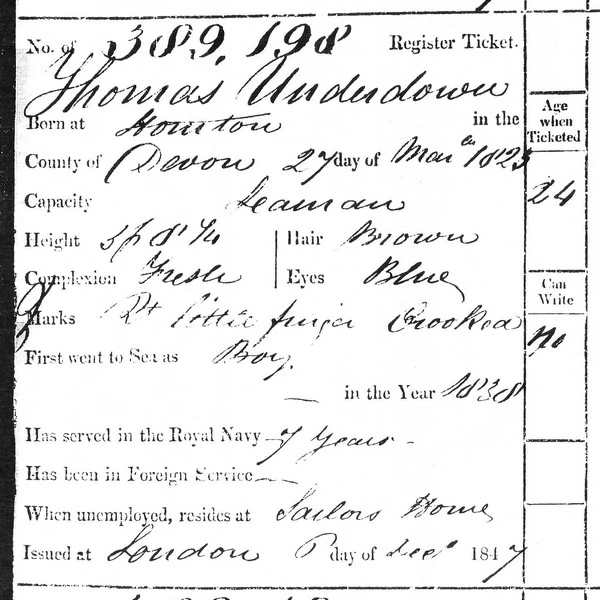 No. of 389,198 Register Ticket.
Thomas Underdown
Born at Honiton in the
County of Devon 27 day of March 1823
Capacity Seaman
Height 5f 8¼ Hair Brown
Complexion Fresh Eyes Blue
Marks Rt little finger Crooked
First went to Sea as Boy.
in the Year 1838
Has served in the Royal Navy 7 years -
Has been in Foreign Service —
When unemployed, resides at Sailors Home
Issued at London day of Decr 1847
Age
when
Ticketed
24
Can
Write
no